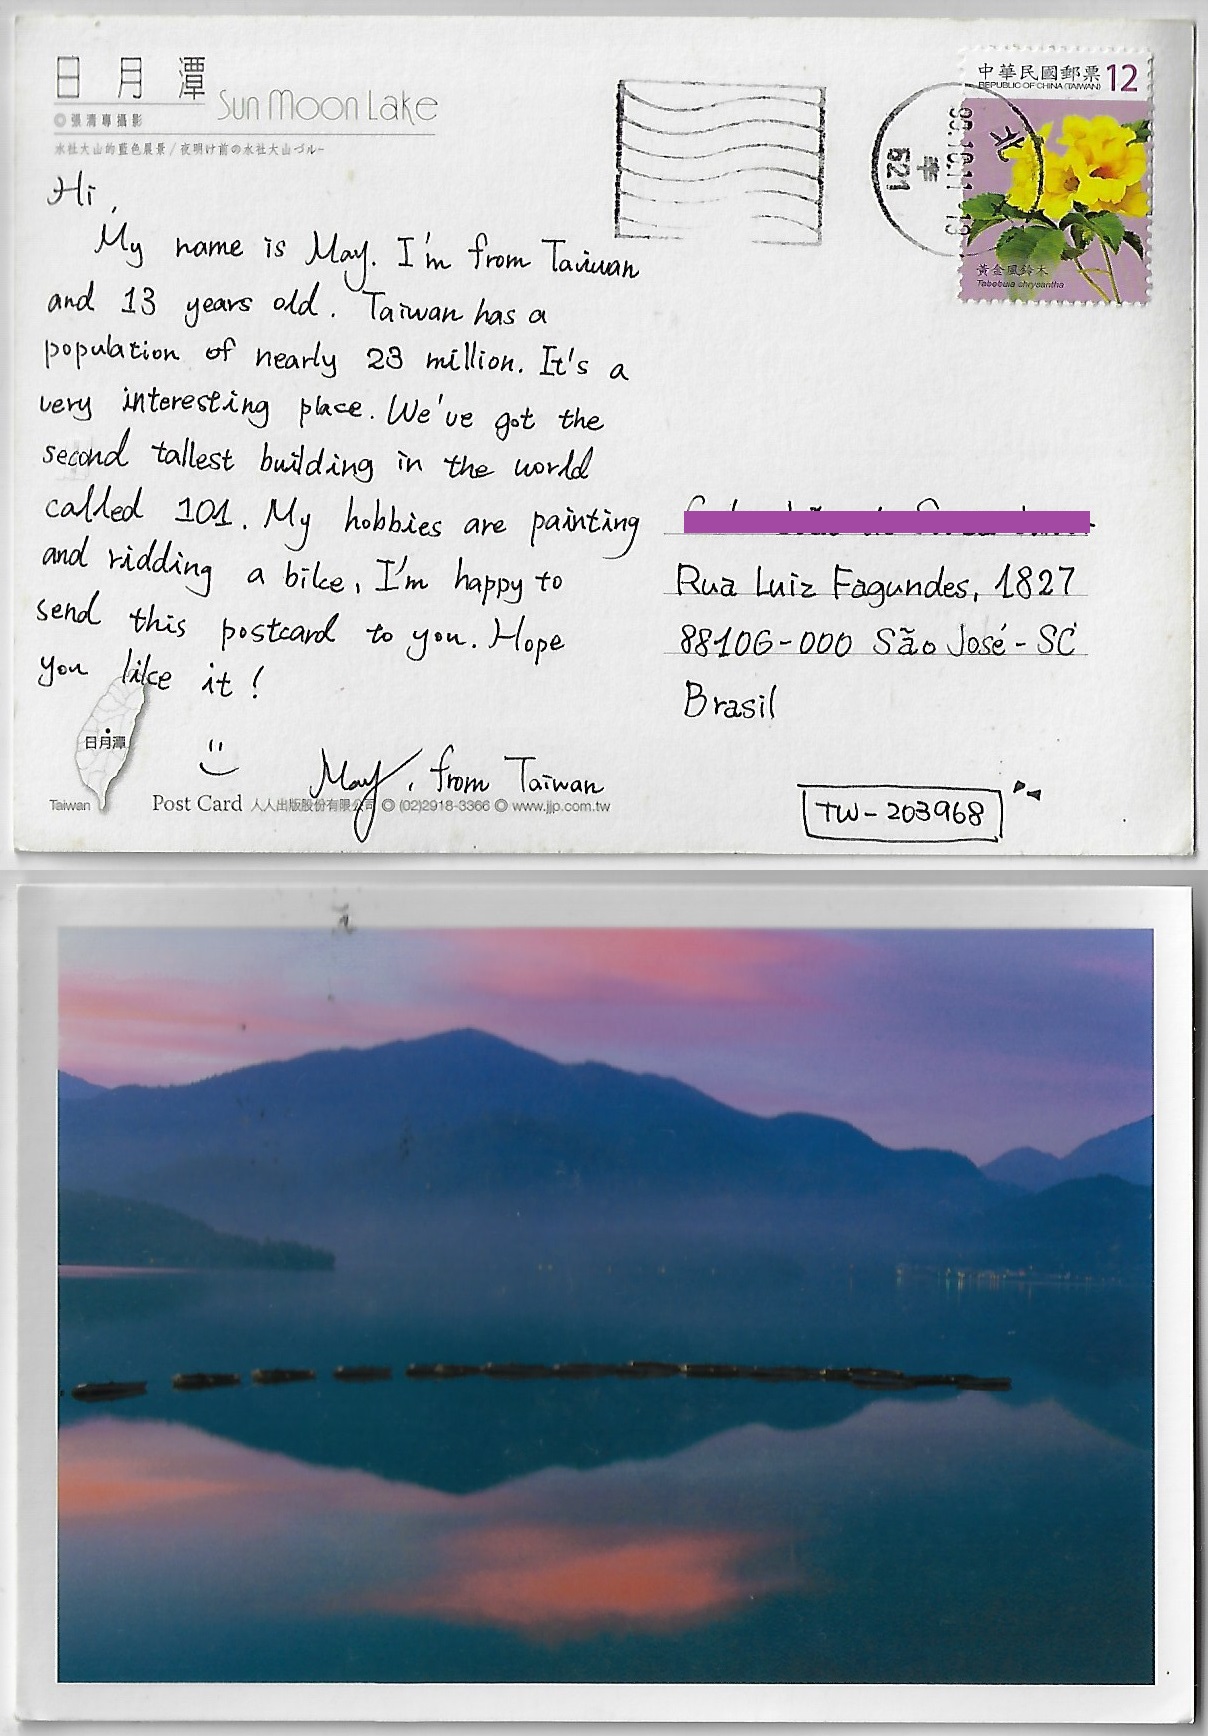 日月潭 Sun Moon Lake
◎張清專攝影
水社大山的藍色晨景/夜明け前の水社大山ブルー
中華民國郵票 12
REPUBLIC OF CHINA (TAIWAN)
黃金風鈴木
Tabebuia chrysantha
Hi,
My name is May. I'm from Taiwan
and 13 years old. Taiwan has a
population of nearly 23 million. It's a
very interesting place. We've got the
second tallest building in the world
called 101. My hobbies are painting
and ridding a bike, I'm happy to
send this postcard to you. Hope
you like it!
May, from Taiwan
日月潭
Taiwan
Post Card 人人出版股份有限公司 ◎ (02)2918-3366 ◎ www.jjp.com.tw
Rua Luiz Fagundes, 1827
88106-000 São José - SC
Brasil
TW-203968